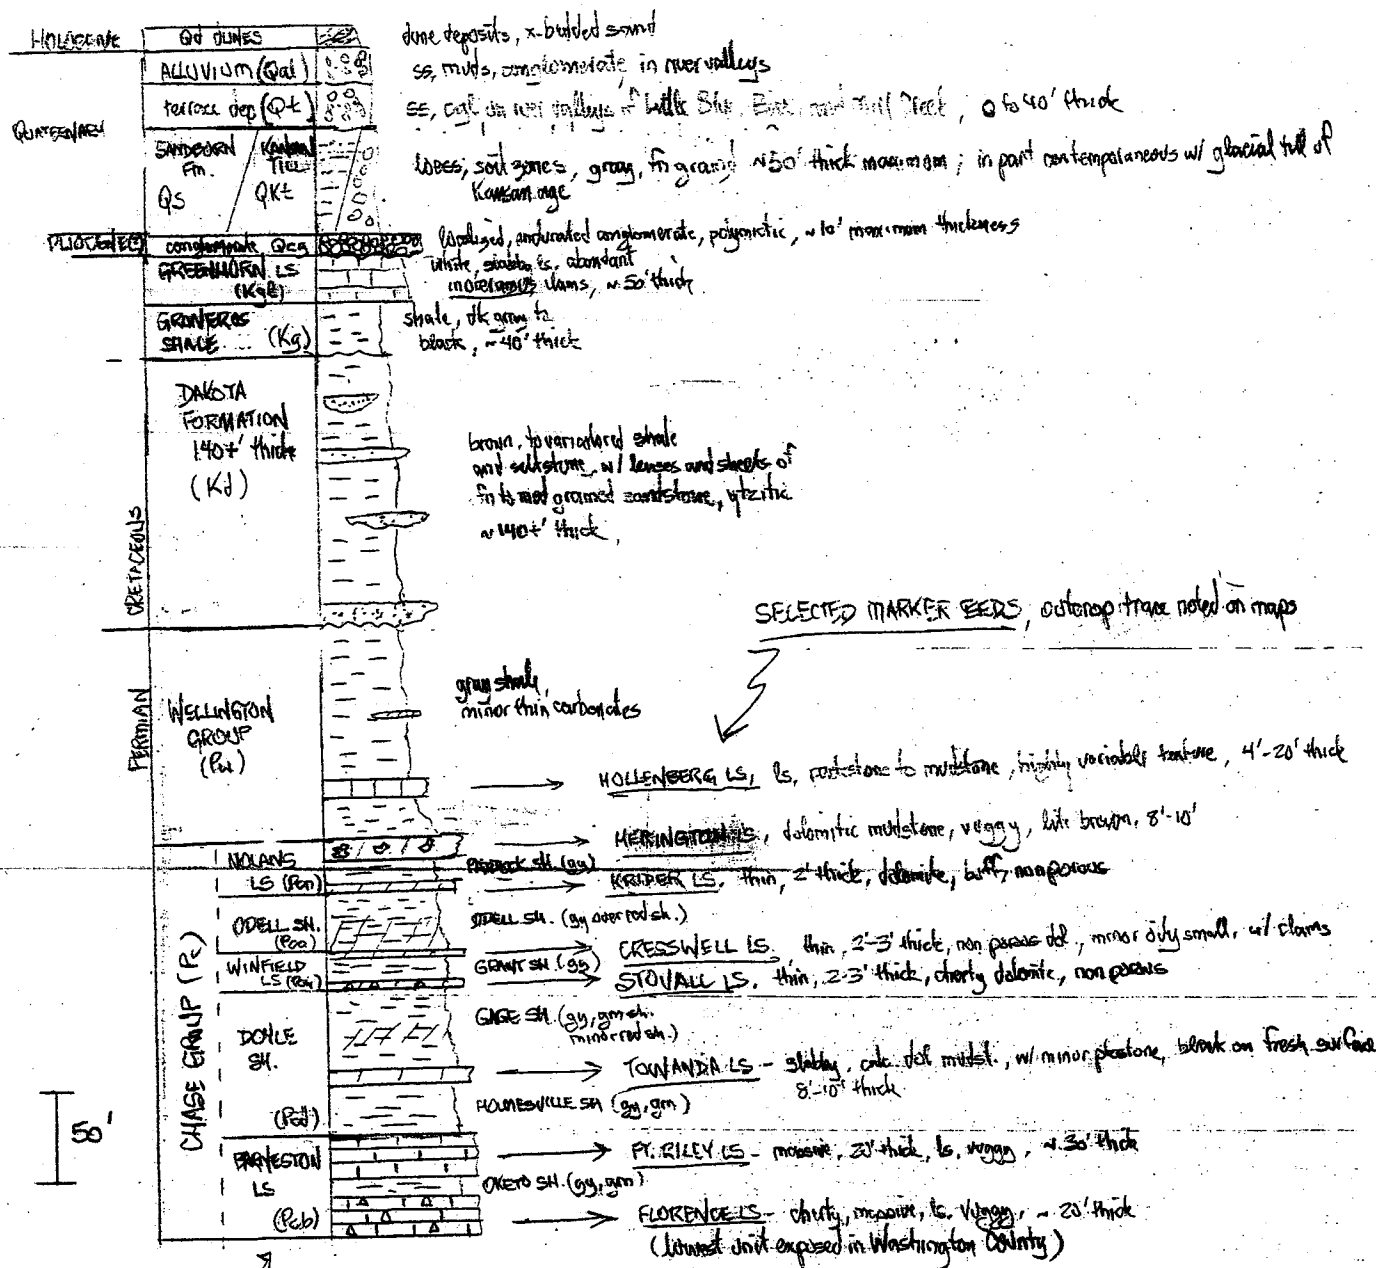 HOLOCENE
Qd DUNES
dune deposits, x-bedded sand
ALLUVIUM (Qal)
ss, muds, conglomerate, in river valleys
QUATERNARY
terrace dep (Qt)
ss, cgl on river valleys of Little Blue, and Mill Creek, 0 to 40' thick
SANDBORN Fm.
Qs
KANSAN TILL
QKt
loess, soil zones, gray, fn grained ~50' thick maximum; in part contemporaneous w/ glacial till of
Kansan age
PLIOCENE(?)
conglomerate Qcg
localized, indurated conglomerate, polymictic, ~10' maximum thickness
GREENHORN LS
(Kgl)
white, slabby ls. abundant
inoceramus clams, ~50' thick
GRANEROS
SHALE (Kg)
shale, dk gray to
black, ~40' thick
CRETACEOUS
DAKOTA
FORMATION
140+' thick
(Kd)
brown, to varicolored shale
and siltstone, w/ lenses and sheets of
fn to med grained sandstone, qtzitic
~140+' thick,
SELECTED MARKER BEDS, outcrop trace noted on maps
PERMIAN
WELLINGTON
GROUP
(Pw)
gray shale,
minor thin carbonates
HOLLENBERG LS, ls, packstone to mudstone, highly variable texture, 4'-20' thick
HERINGTON LS, dolomitic mudstone, vuggy, lite brown, 8'-10'
CHASE GROUP (Pc)
NOLANS
LS (Pcn)
PADDOCK SH. (gy)
KRIDER LS. thin, 2' thick, dolomite, buff, nonporous
ODELL SH.
(Pco)
ODELL SH. (gy over red sh.)
CRESSWELL LS. thin, 2'-3' thick, non porous dol., minor small, w/ clams
WINFIELD
LS (Pcw)
GRANT SH. (gy)
STOVALL LS. thin, 2-3' thick, cherty dolomite, non porous
DOYLE
SH.
(Pcd)
GAGE SH. (gy, grn sh.
minor red sh.)
TOWANDA LS - slabby, calc. dol mudst., w/ minor pkstone, bleak on fresh surface
8'-10' thick
HOLMESVILLE SH (gy, grn)
50'
BARNESTON
LS
(Pcb)
FT. RILEY LS - massive, 20' thick, ls, vuggy, ~30' thick
OKETO SH. (gy, grn)
FLORENCE LS - cherty, massive, ls. vuggy, ~20' thick
(lowest unit exposed in Washington County)